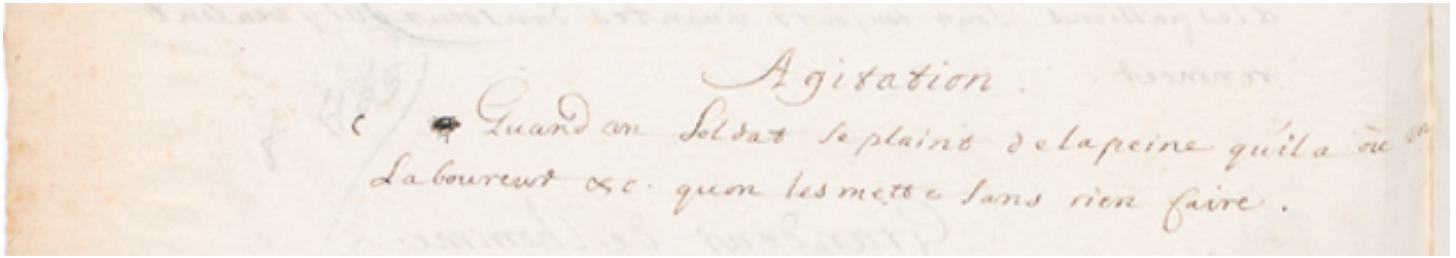 Agitation.
c Quand un Soldat se plaint de la peine qu'il a ou un
Laboureur &c. qu'on les mette sans rien faire.